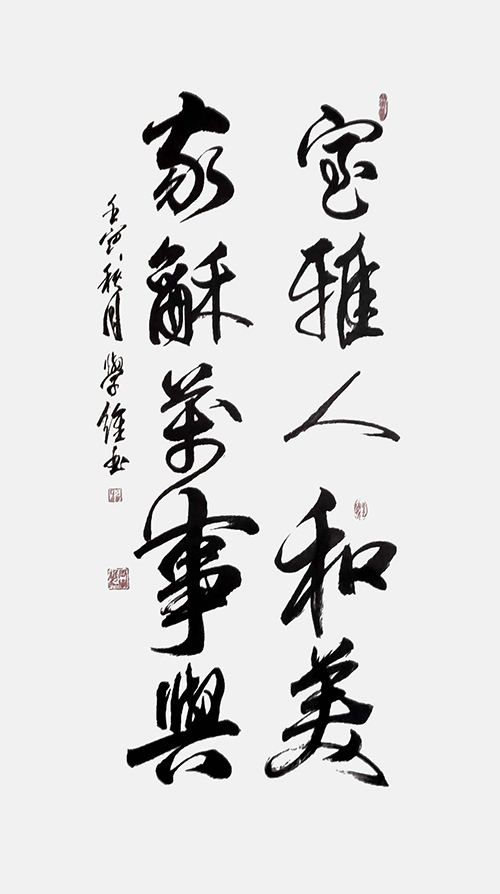 室雅人和美
家龢萬事興
壬寅秋月學書